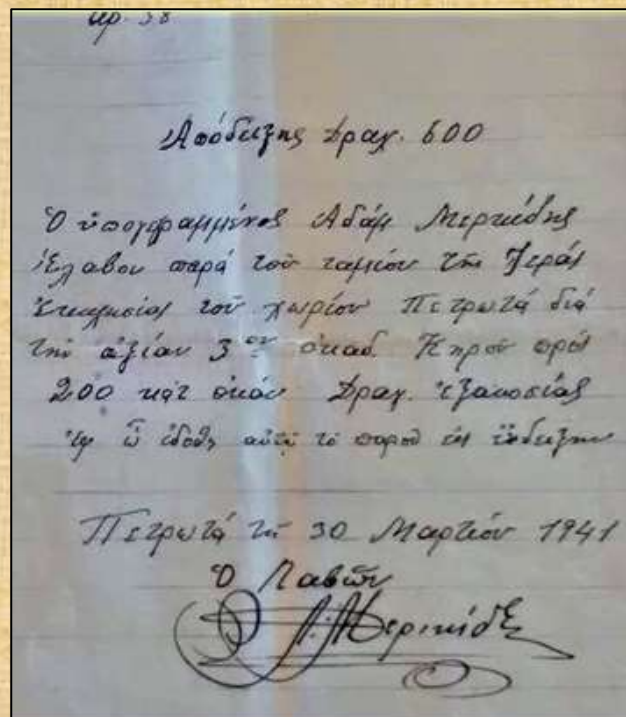 αρ. 38
Απόδειξης Δραχ. 600
Ὁ ὑπογραμμένος Αδάμ Μερικίδης
Ἔλαβον παρά τοῦ ταμίου τῆς Ἱεράς
Ἐκκλησίας τοῦ χωρίου Πετρωτά διά
την ἀξίαν 3 ὀκάδ. Κηροῦ πρός
200 κατ ὀκάν Δραχ. ἑξακοσίας
ἐφ ᾧ ἐδόθη αὐτῷ τὸ παρόν εἰς ἔνδειξην
Πετρωτά τῇ 30 Μαρτίου 1941
Ὁ Λαβῶν